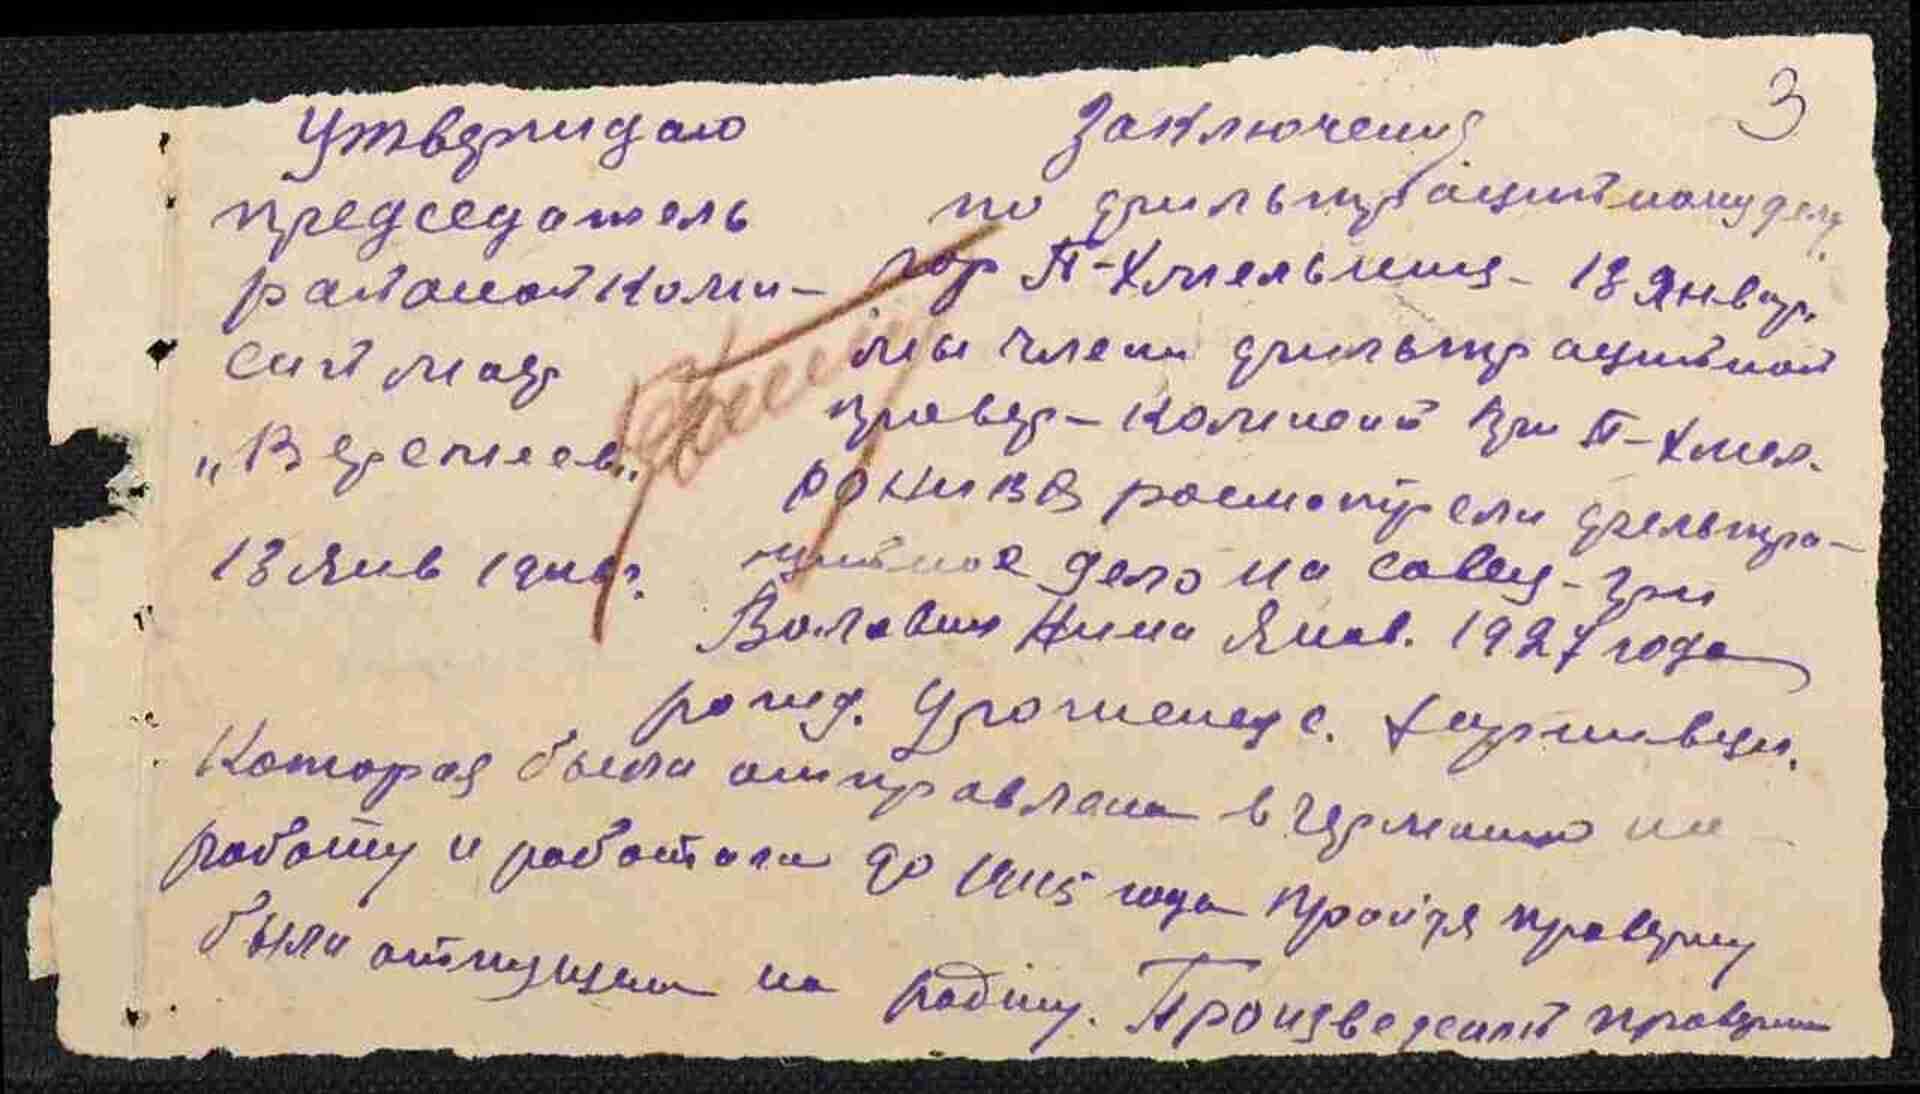 3
Утвержидаю
председатель
районой Коми-
сий маер
„Веремеев„
13 Янв 1946г.
Заключения
по фильтрацийному делу
гор П-Хмельниц- 13 Январ.
мы члени фильтрацийной
провер- комисий при П-Хмел.
РО НКВД росмотрели фильтра-
цийное дело на совец- гри
Нина Яков. 1927 года
рожд. Уроженец с.
Которая была отправлена в Германию на
работу и работала до 1945 года пройдя проверку
были отпущени на родину. Произведений проверки